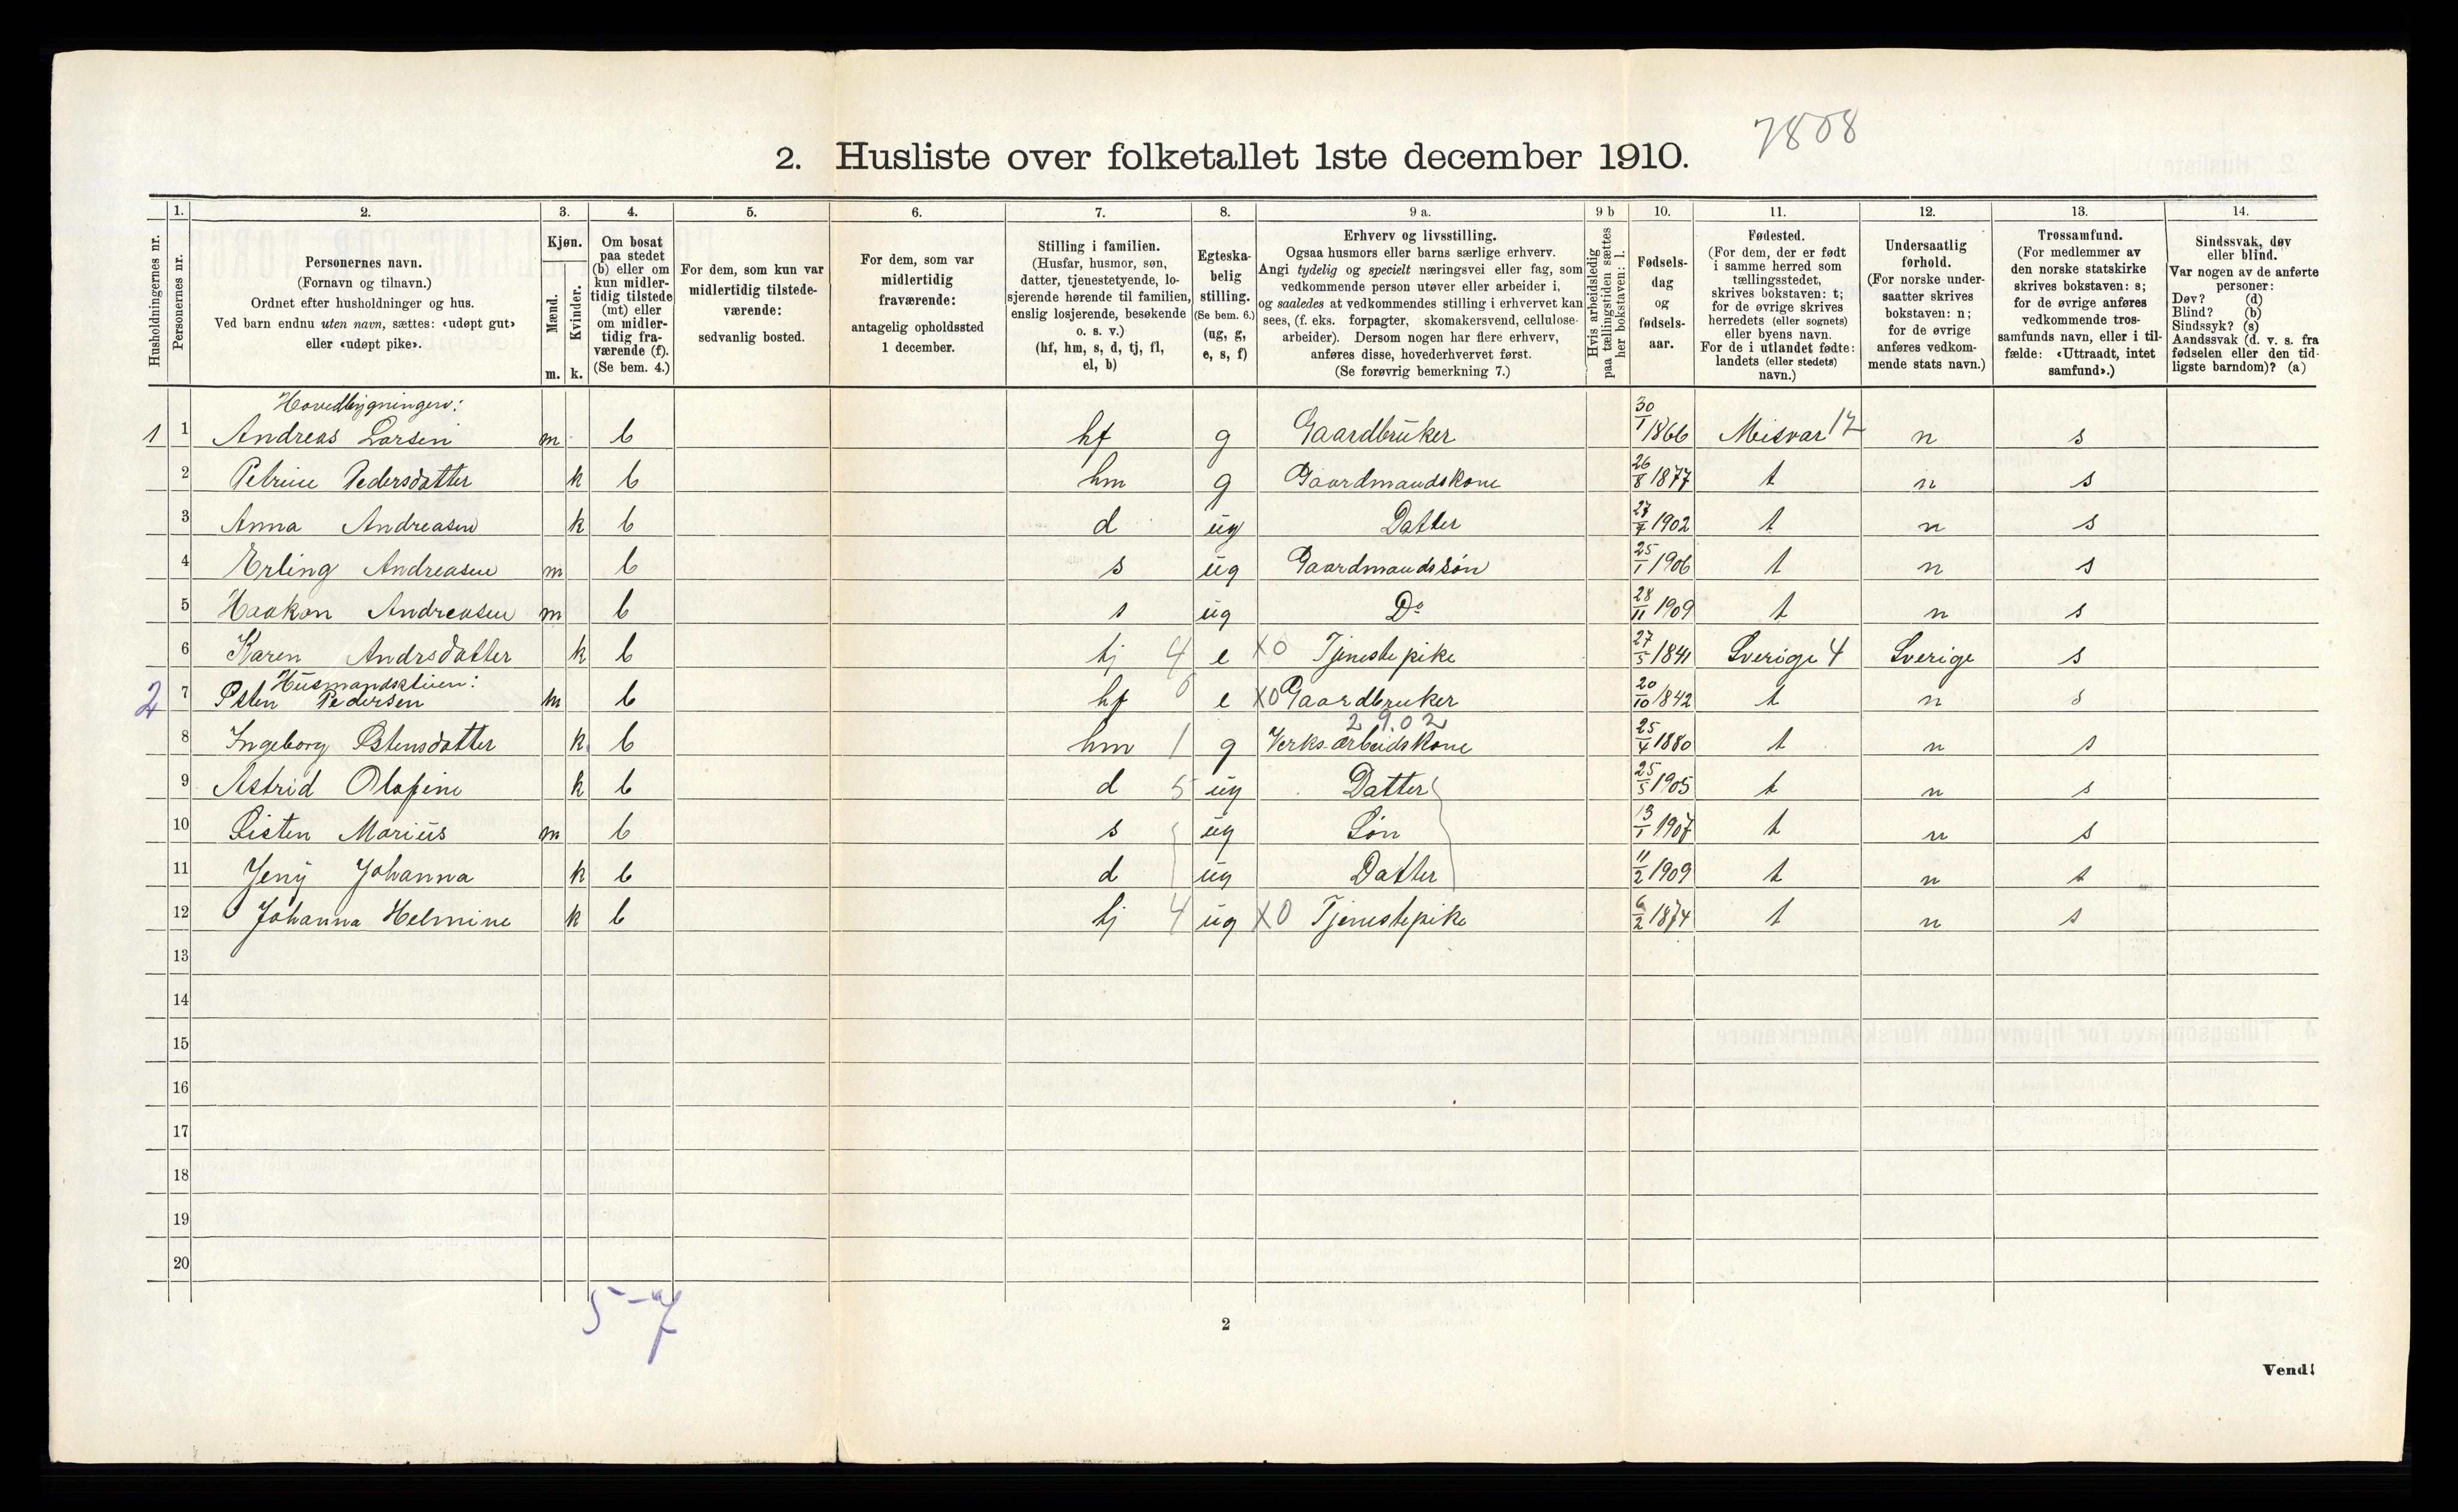 7808
2. Husliste over folketallet 1ste december 1910.
Husholdningernes nr.
1.
Personernes nr.
2.
Personernes navn.
(Fornavn og tilnavn.)
Ordnet efter husholdninger og hus.
Ved barn endnu uten navn, sættes: «udøpt gut»
eller «udøpt pike».
3.
Kjøn.
Mænd.
Kvinder.
m. k.
4.
Om bosat
paa stedet
(b) eller om
kun midler-
tidig tilstede
(mt) eller
om midler-
tidig fra-
værende (f).
(Se bem. 4.)
5.
For dem, som kun var
midlertidig tilstede-
værende:
sedvanlig bosted.
6.
For dem, som var
midlertidig
fraværende:
antagelig opholdssted
1 december.
7.
Stilling i familien.
(Husfar, husmor, søn,
datter, tjenestetyende, lo-
sjerende hørende til familien,
enslig losjerende, besøkende
o. s. v.)
(hf, hm, s, d, tj, fl,
el, b)
8.
Egteska-
belig
stilling.
(Se bem. 6.)
(ug, g,
e, s, f)
9 a.
Erhverv og livsstilling.
Ogsaa husmors eller barns særlige erhverv.
Angi tydelig og specielt næringsvei eller fag, som
vedkommende person utøver eller arbeider i,
og saaledes at vedkommendes stilling i erhvervet kan
sees, (f. eks. forpagter, skomakersvend, cellulose-
arbeider). Dersom nogen har flere erhverv,
anføres disse, hovederhvervet først.
(Se forøvrig bemerkning 7.)
9 b
Hvis arbeidsledig
paa tællingstiden sættes
her bokstaven: l.
10.
Fødsels-
dag
og
fødsels-
aar.
11.
Fødested.
(For dem, der er født
i samme herred som
tællingsstedet,
skrives bokstaven: t;
for de øvrige skrives
herredets (eller sognets)
eller byens navn.
For de i utlandet fødte:
landets (eller stedets)
navn.)
12.
Undersaatlig
forhold.
(For norske under-
saatter skrives
bokstaven: n;
for de øvrige
anføres vedkom-
mende stats navn.)
13.
Trossamfund.
(For medlemmer av
den norske statskirke
skrives bokstaven: s;
for de øvrige anføres
vedkommende tros-
samfunds navn, eller i til-
fælde: «Uttraadt, intet
samfund».)
14.
Sindssvak, døv
eller blind.
Var nogen av de anførte
personer:
Døv? (d)
Blind? (b)
Sindssyk? (s)
Aandssvak (d. v. s. fra
fødselen eller den tid-
ligste barndom)? (a)
Hovedbygningen:
1 1 Andreas Larsen m b hf g Gaardbruker 30/1 1866 Misvær 12 n s
2 Petrine Pedersdatter k b hm g Gaardmandskone 26/8 1877 t n s
3 Anna Andreasen k b d ug Datter 27/7 1902 t n s
4 Erling Andreasen m b s ug Gaardmandssøn 25/1 1906 t n s
5 Haakon Andreasen m b s ug Do 28/11 1909 t n s
6 Karen Andrsdatter k b tj 4 e X0 Tjenestepike 27/5 1841 Sverige 4 Sverige s
Husmandsstuen:
2 7 Østen Pedersen m b hf 6 e X0 Gaardbruker 20/10 1842 t n s
2 9.02
8 Ingeborg Østensdatter k b hm 1 g Verks-arbeidskone 25/4 1880 t n s
9 Astrid Olafine k b d 5 ug Datter 25/5 1905 t n s
10 Østen Marius m b s ug Søn 13/1 1907 t n s
11 Jeny Johanna k b d ug Datter 11/2 1909 t n s
12 Johanna Helmine k b tj 4 ug X0 Tjenestepike 6/2 1874 t n s
13
14
15
16
17
18
19
20
5-7
2
Vend!